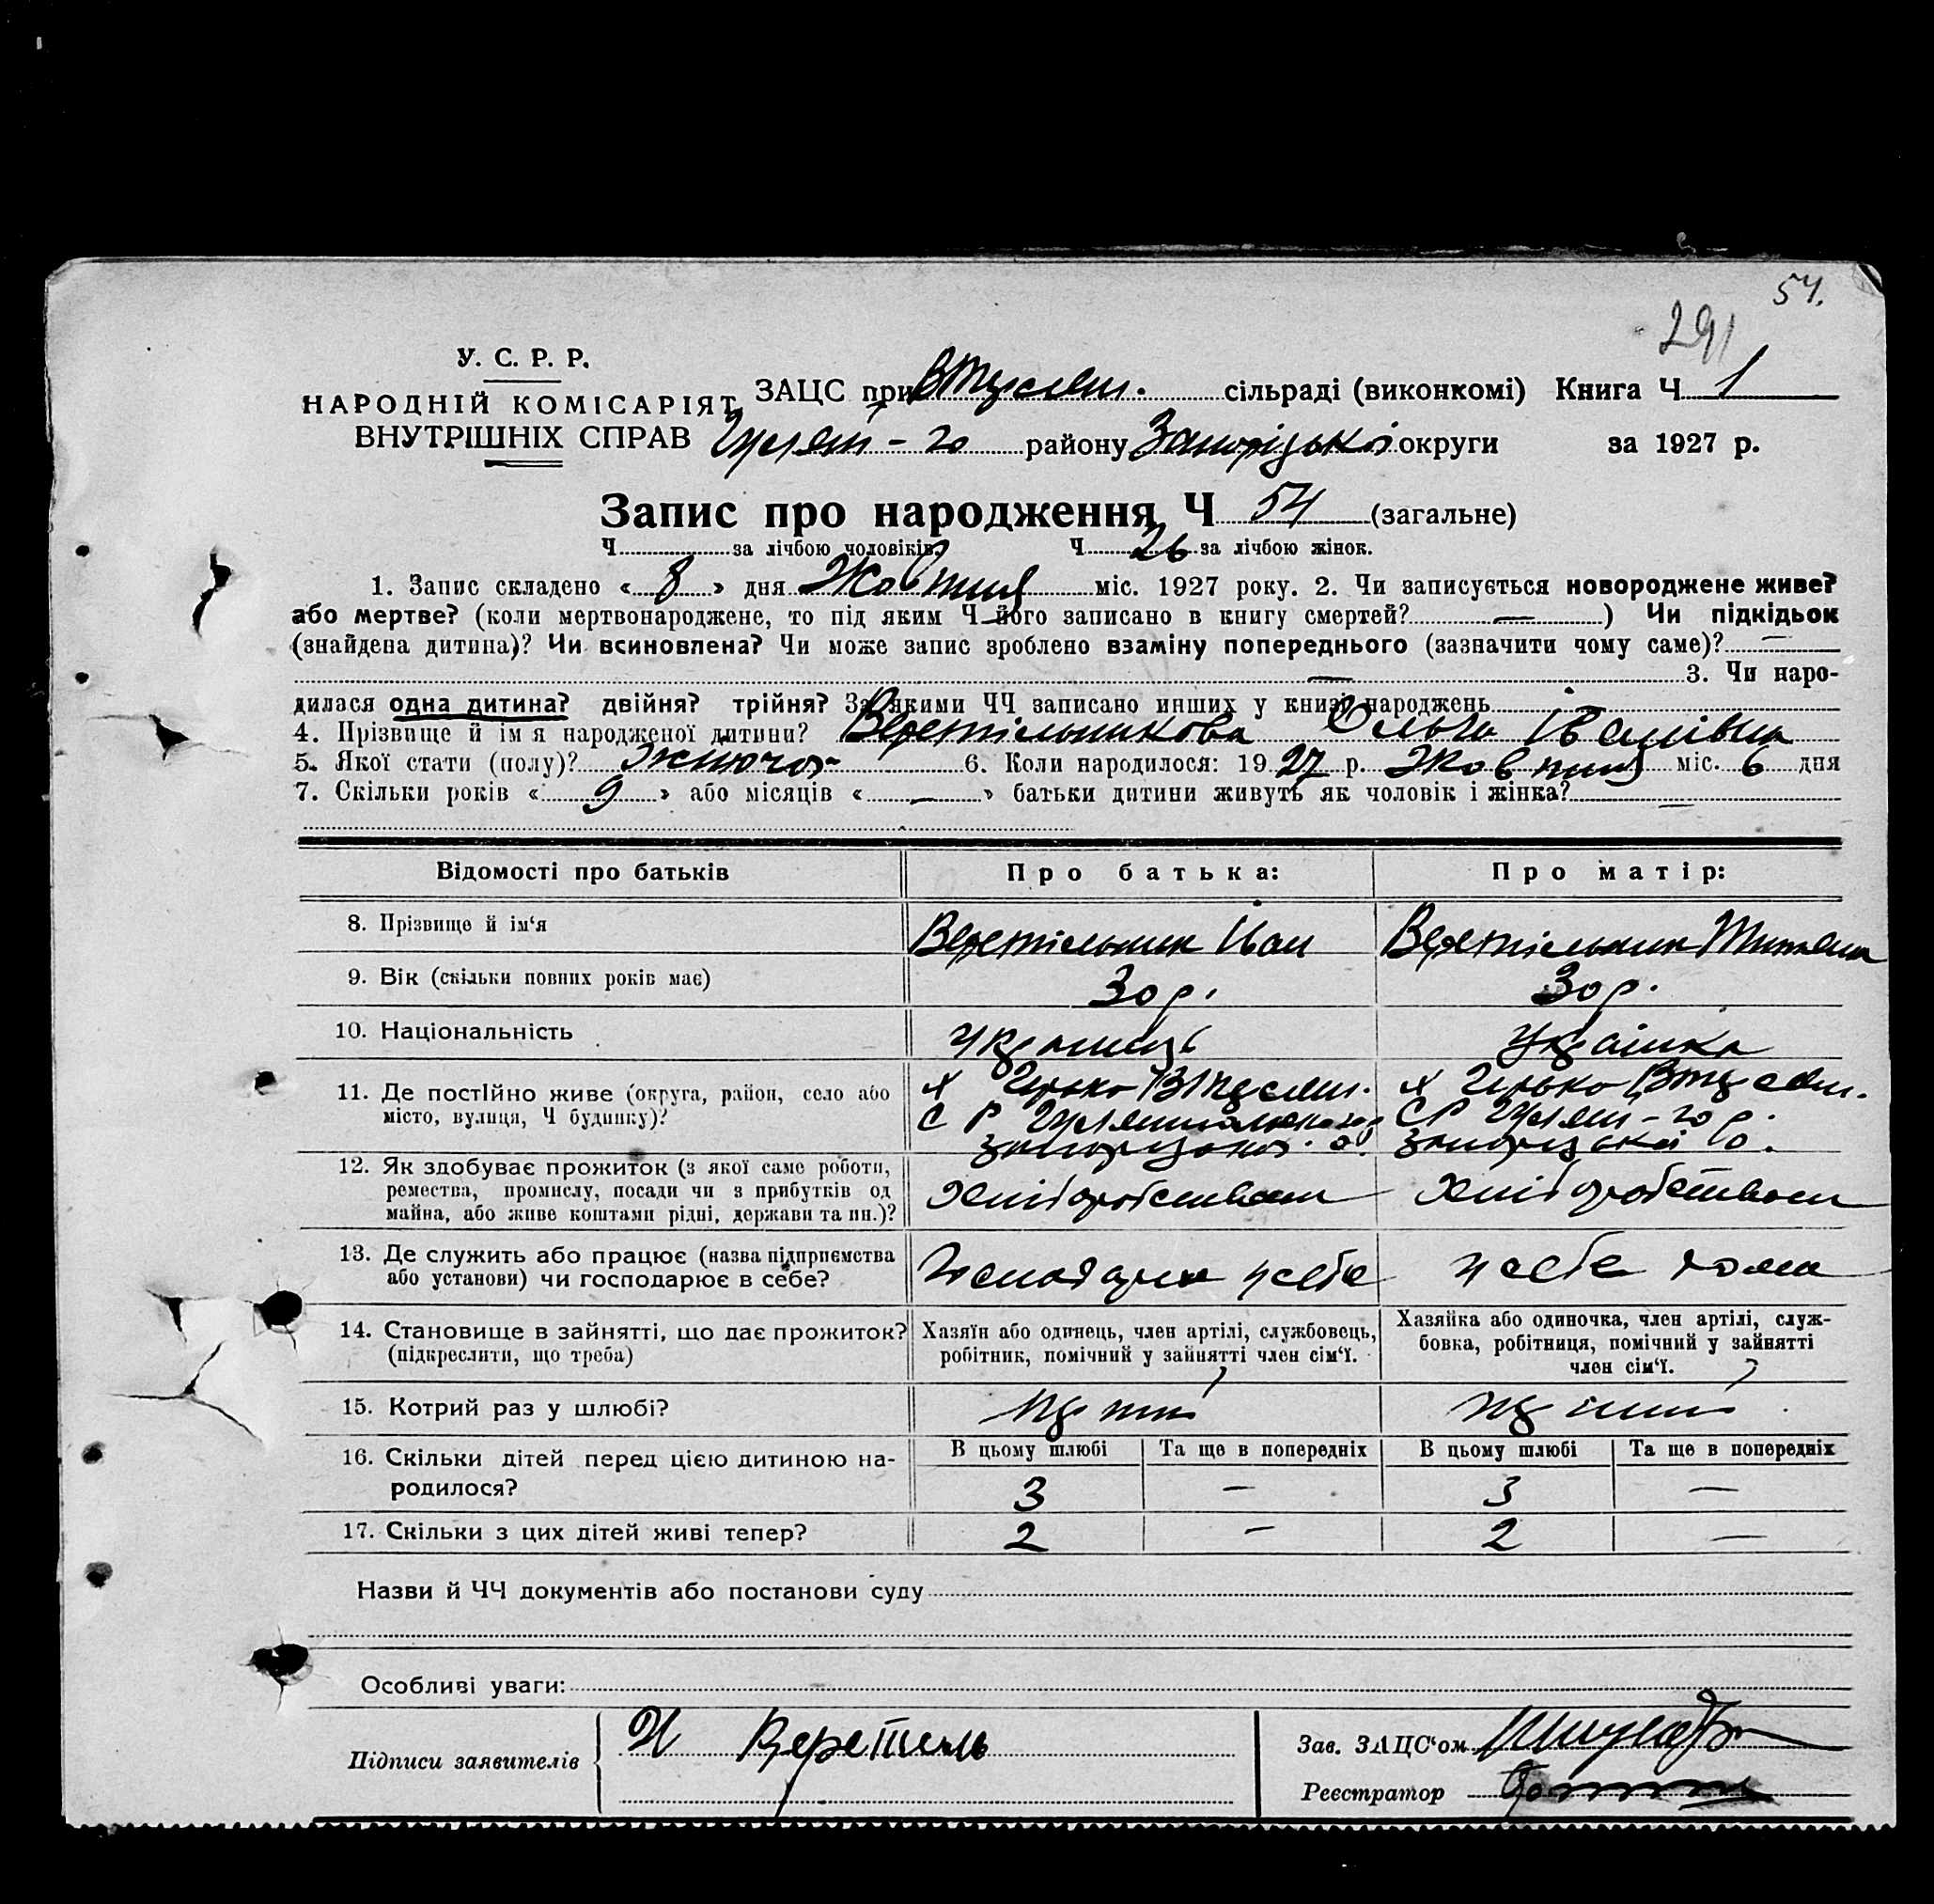 54.
291
У. С. Р. Р.
НАРОДНІЙ КОМІСАРІЯТ
ВНУТРІШНІХ СПРАВ
ЗАЦС при сільраді (виконкомі) Книга Ч 1
району Запоріцької округи за 1927 р.
Запис про народження Ч 54 (загальне)
Ч за лічбою чоловіків. Ч 26 за лічбою жінок.
1. Запис складено « 8 » дня Жовтня міс. 1927 року. 2. Чи записується новороджене живе?
або мертве? (коли мертвонароджене, то під яким Ч його записано в книгу смертей? — ) Чи підкідьок
(знайдена дитина)? Чи всиновлена? Чи може запис зроблено взаміну попереднього (зазначити чому саме)? —
— 3. Чи наро-
дилася одна дитина? двійня? трійня? За якими ЧЧ записано инших у книзі народжень
4. Прізвище й ім я народженої дитини? Веретільникова Ольга Іванівна
5. Якої стати (полу)? жіночої 6. Коли народилося: 1927 р. Жовтня міс. 6 дня
7. Скільки років « 9 » або місяців « — » батьки дитини живуть як чоловік і жінка? —
Відомості про батьків Про батька: Про матір:
8. Прізвище й ім‘я Веретільник Іван Веретільник
9. Вік (скільки повних років має) 30 р. 30 р.
10. Національність українець Українка
11. Де постійно живе (округа, район, село або
місто, вулиця, Ч будинку)?
12. Як здобуває прожиток (з якої саме роботи,
ремества, промислу, посади чи з прибутків од
майна, або живе коштами рідні, держави та ин.)? Хліборобством Хліборобством
13. Де служить або працює (назва підприємства
або установи) чи господарює в себе? Господарює у себе у себе дома
14. Становище в зайнятті, що дає прожиток?
(підкреслити, що треба)
Хазяїн або одинець, член артілі, службовець,
робітник, помічний у зайнятті член сім‘ї.
Хазяйка або одиночка, член артілі, служ-
бовка, робітниця, помічний у зайнятті
член сім‘ї.
15. Котрий раз у шлюбі?
16. Скільки дітей перед цією дитиною на-
родилося?
В цьому шлюбі Та ще в попередніх В цьому шлюбі Та ще в попередніх
3 — 3 —
17. Скільки з цих дітей живі тепер? 2 — 2 —
Назви й ЧЧ документів або постанови суду
Особливі уваги:
Підписи заявителів И Веретиль
Зав. ЗАЦС‘ом
Реєстратор